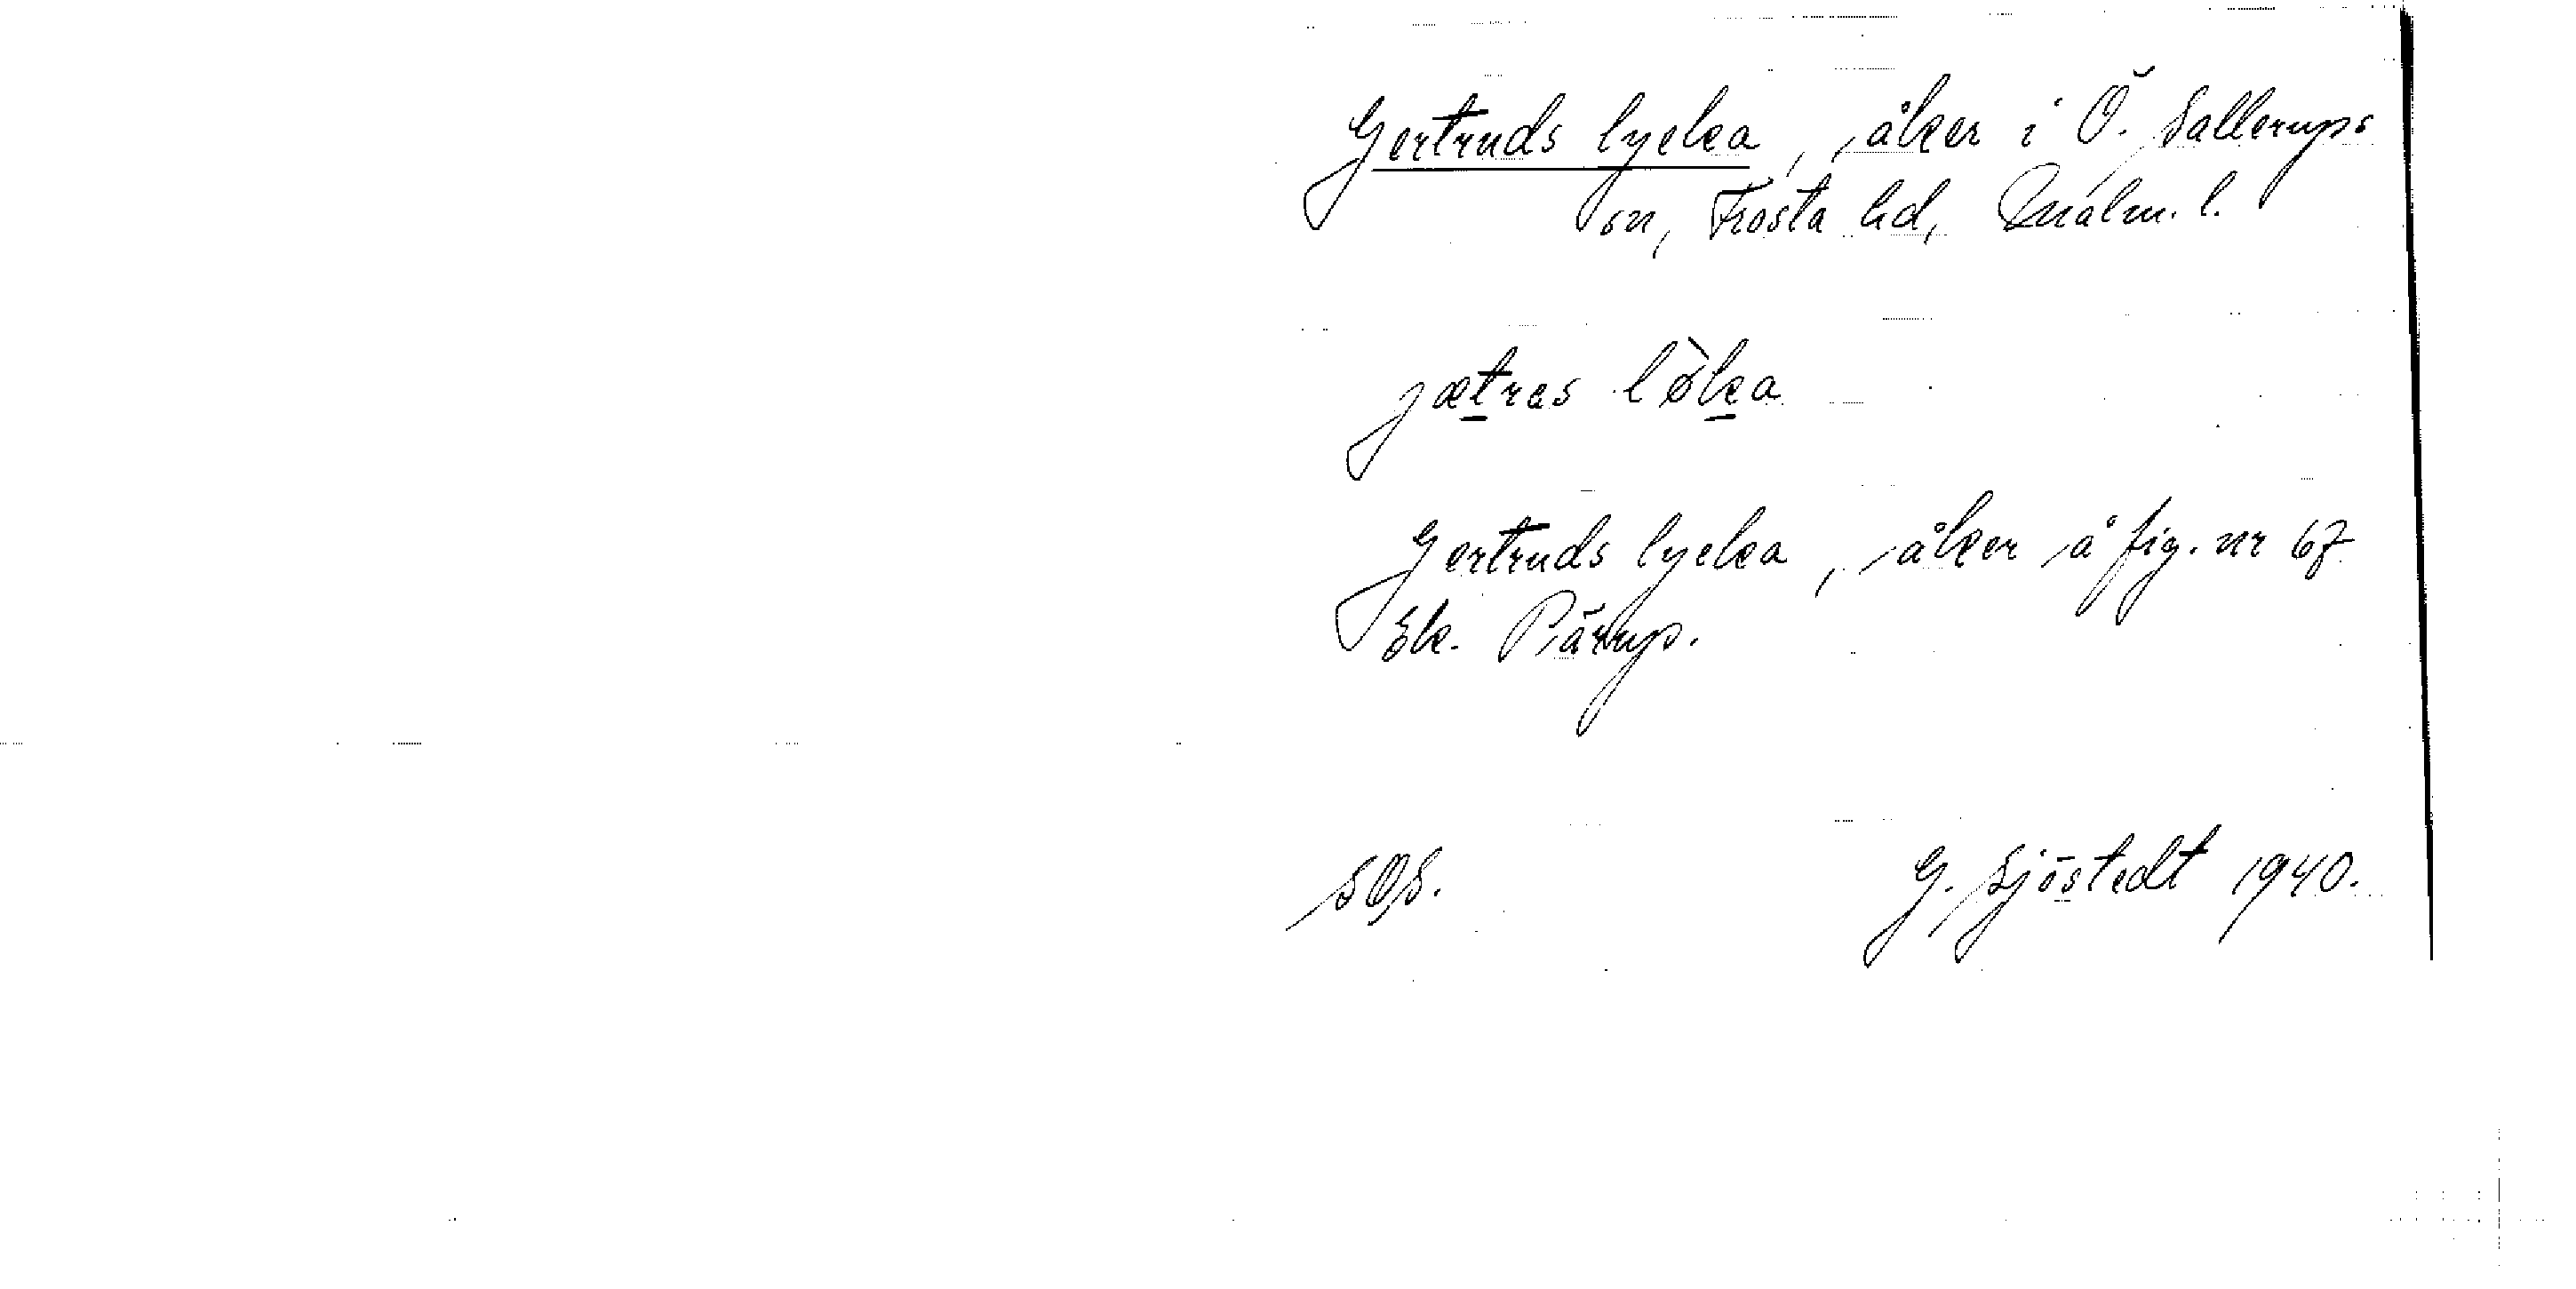 Gertruds lycka, åker i Ö. Sallerups
sn, Frosta hd, Malm. l.
jætras lòka
Gertruds lycka, åker å fig. nr 67
Ek. Pärup.
SOS.
G. Sjöstedt 1940.